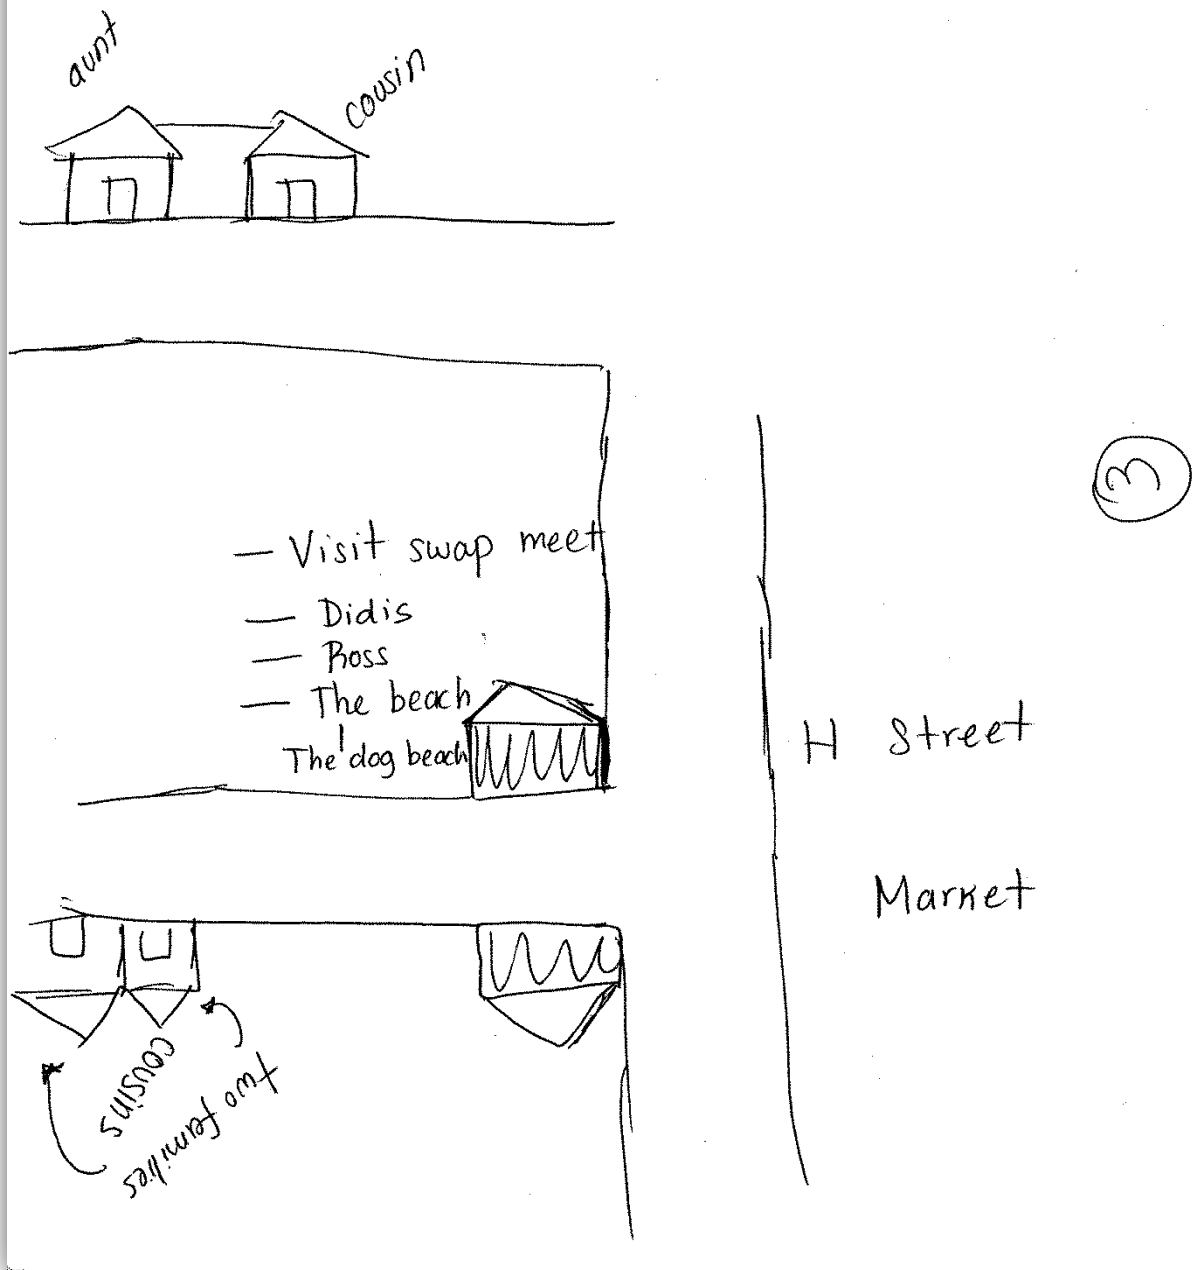 aunt
cousin
3
— Visit swap meet
— Didis
— Ross
— The beach
The dog beach
H Street
Market
cousins
two families